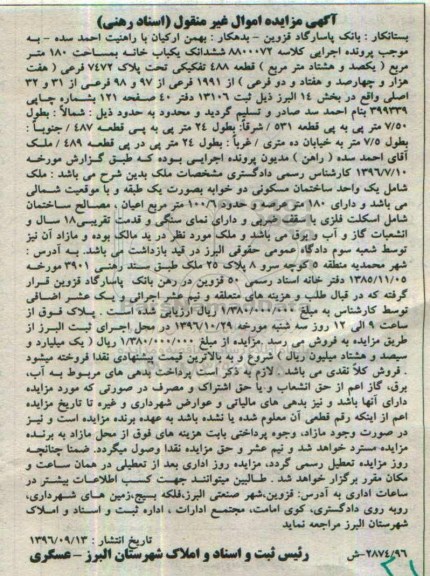 آگهی مزایده اموال غیر منقول (اسناد رهنی)
بستانکار: بانک پاسارگاد قزوین - بدهکار: بهمن ارکیان با راهنیت احمد سده - به
موجب پرونده اجرایی کلاسه ۸۸۰۰۰۷۲ ششدانگ یکباب خانه بمساحت ۱۸۰ متر
مربع ( یکصد و هشتاد متر مربع ) قطعه ۴۸۸ تفکیکی تحت پلاک ۷۴۷۲ فرعی ( هفت
هزار و چهارصد و هفتاد و دو فرعی ) از ۱۹۹۱ فرعی از ۹۷ و ۹۸ فرعی از ۳۱ و ۳۲
اصلی واقع در بخش ۱۴ البرز ذیل ثبت ۱۳۱۰۶ دفتر ۴۰ صفحه ۱۲۱ بشماره چاپی
۳۹۹۳۳۹ بنام احمد سد صادر و تسلیم گردید و محدود به حدود ذیل : شمالاً : بطول
۷/۵۰ متر پی به پی قطعه ۵۳۱ / شرقاً: بطول ۲۴ متر پی به پی قطعه ۴۸۷ / جنوباً :
بطول ۷/۵ متر به خیابان ده متری / غرباً : بطول ۲۴ متر پی در پی قطعه ۴۸۹ / ملک
آقای احمد سده ( راهن ) مدیون پرونده اجرایی بوده که طبق گزارش مورخه
۱۳۹۶/۷/۱۰ کارشناس رسمی دادگستری مشخصات ملک بدین شرح می باشد : ملک
شامل یک واحد ساختمان مسکونی دو خوابه بصورت یک طبقه و با موقعیت شمالی
می باشد و دارای ۱۸۰ متر عرصه و حدود ۱۰۰/۶ متر مربع اعیان ، مصالح ساختمان
شامل اسکلت فلزی با سقف ضربی و دارای نمای سنگی و قدمت تقریبی ۱۸ سال و
انشعبات گاز و آب و برق می باشد و ملک مورد نظر در ید مالک بوده و مازاد آن نیز
توسط شعبه سوم دادگاه عمومی حقوقی البرز در قید بازداشت می باشد. به آدرس :
شهر محمدیه منطقه ۵ کوچه سرو ۸ پلاک ۲۵ ملک طبق سند رهنی ۳۹۰۱ مورخه
۱۳۸۵/۱۱/۰۵ دفتر خانه اسناد رسمی ۵۰ قزوین در رهن بانک پاسارگاد قزوین قرار
گرفته که در قبال طلب و هزینه های متعلقه و نیم عشر اجرائی و یک عشر اضافی
توسط کارشناس به مبلغ ۱/۳۸۰/۰۰۰/۰۰۰ ریال ارزیابی شده است . پلاک فوق از
ساعت ۹ الی ۱۲ روز سه شنبه مورخه ۱۳۹۶/۱۰/۲۹ در محل اجرای ثبت البرز از
طریق مزایده به فروش می رسد .مزایده از مبلغ ۱/۳۸۰/۰۰۰/۰۰۰ ریال ( یک میلیارد و
سیصد و هشتاد میلیون ریال ) شروع و به بالاترین قیمت پیشنهادی نقدا فروخته میشود
. فروش کلاً نقدی می باشد. لازم به ذکر است پرداخت بدهی های مربوط به آب،
برق، گاز اعم از حق انشعاب و یا حق اشتراک و مصرف در صورتی که مورد مزایده
دارای آنها باشد و نیز بدهی های مالیاتی و عوارض شهرداری و غیره تا تاریخ مزایده
اعم از اینکه رقم قطعی آن معلوم شده یا نشده باشد به عهده برنده مزایده است و نیز
در صورت وجود مازاد، وجوه پرداختی بابت هزینه های فوق از محل مازاد به برنده
مزایده مسترد خواهد شد و نیم عشر و حق مزایده نقدا وصول میگردد. ضمنا چنانچه
روز مزایده تعطیل رسمی گردد، مزایده روز اداری بعد از تعطیلی در همان ساعت و
مکان مقرر برگزار خواهد شد . طالبین میتوانند جهت کسب اطلاعات بیشتر در
ساعات اداری به آدرس: قزوین،شهر صنعتی البرز،فلکه بسیج،زمین های شهرداری،
روبه روی دادگستری، کوی امامت، مجتمع ادارات ، اداره ثبت و اسناد و املاک
شهرستان البرز مراجعه نماید
تاریخ انتشار : ۱۳۹۶/۰۹/۱۳
رئیس ثبت و اسناد و املاک شهرستان البرز - عسگری
۲۸۷۴/۹۶-ش